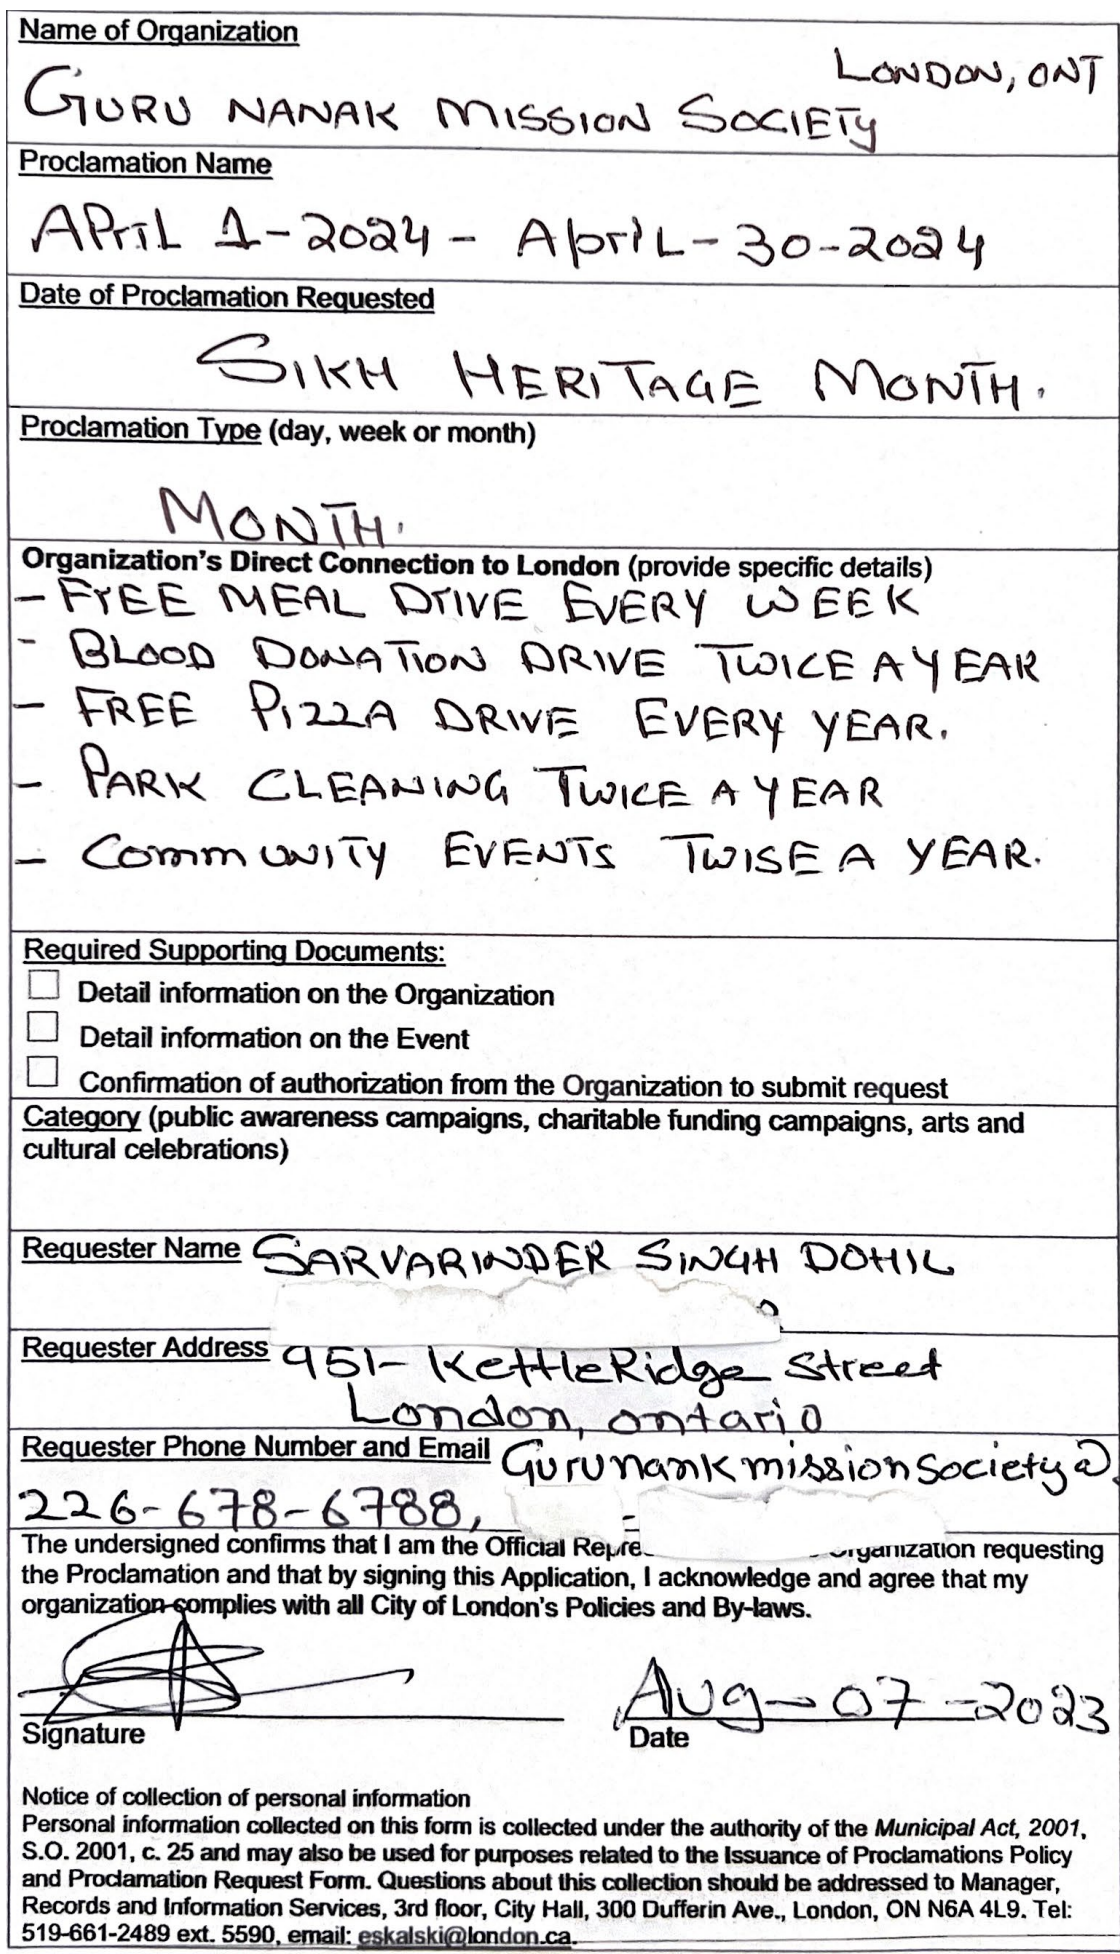 Name of Organization
LONDON, ONT
GURU NANAK MISSION SOCIETY
Proclamation Name
APriL 1-2024 - ApriL-30-2024
Date of Proclamation Requested
SIKH HERITAGE MONTH.
Proclamation Type (day, week or month)
MONTH.
Organization's Direct Connection to London (provide specific details)
- FrEE MEAL DrIVE EVERY WEEK
- BLOOD DONATION DRIVE TWICE A YEAR
- FREE PIZZA DRIVE EVERY YEAR.
- PARK CLEANING TWICE A YEAR
- CommUNITY EVENTS TWISE A YEAR.
Required Supporting Documents:
Detail information on the Organization
Detail information on the Event
Confirmation of authorization from the Organization to submit request
Category (public awareness campaigns, charitable funding campaigns, arts and
cultural celebrations)
Requester Name SARVARINDER SINGH DOHIL
Requester Address 951- KettleRidge Street
London, ontario
Requester Phone Number and Email Gurunankmissionsociety@
226-678-6788,
The undersigned confirms that I am the Official Repre rganization requesting
the Proclamation and that by signing this Application, I acknowledge and agree that my
organization complies with all City of London's Policies and By-laws.
Aug-07-2023
Signature Date
Notice of collection of personal information
Personal information collected on this form is collected under the authority of the Municipal Act, 2001,
S.O. 2001, c. 25 and may also be used for purposes related to the Issuance of Proclamations Policy
and Proclamation Request Form. Questions about this collection should be addressed to Manager,
Records and Information Services, 3rd floor, City Hall, 300 Dufferin Ave., London, ON N6A 4L9. Tel:
519-661-2489 ext. 5590, email: eskalski@london.ca.